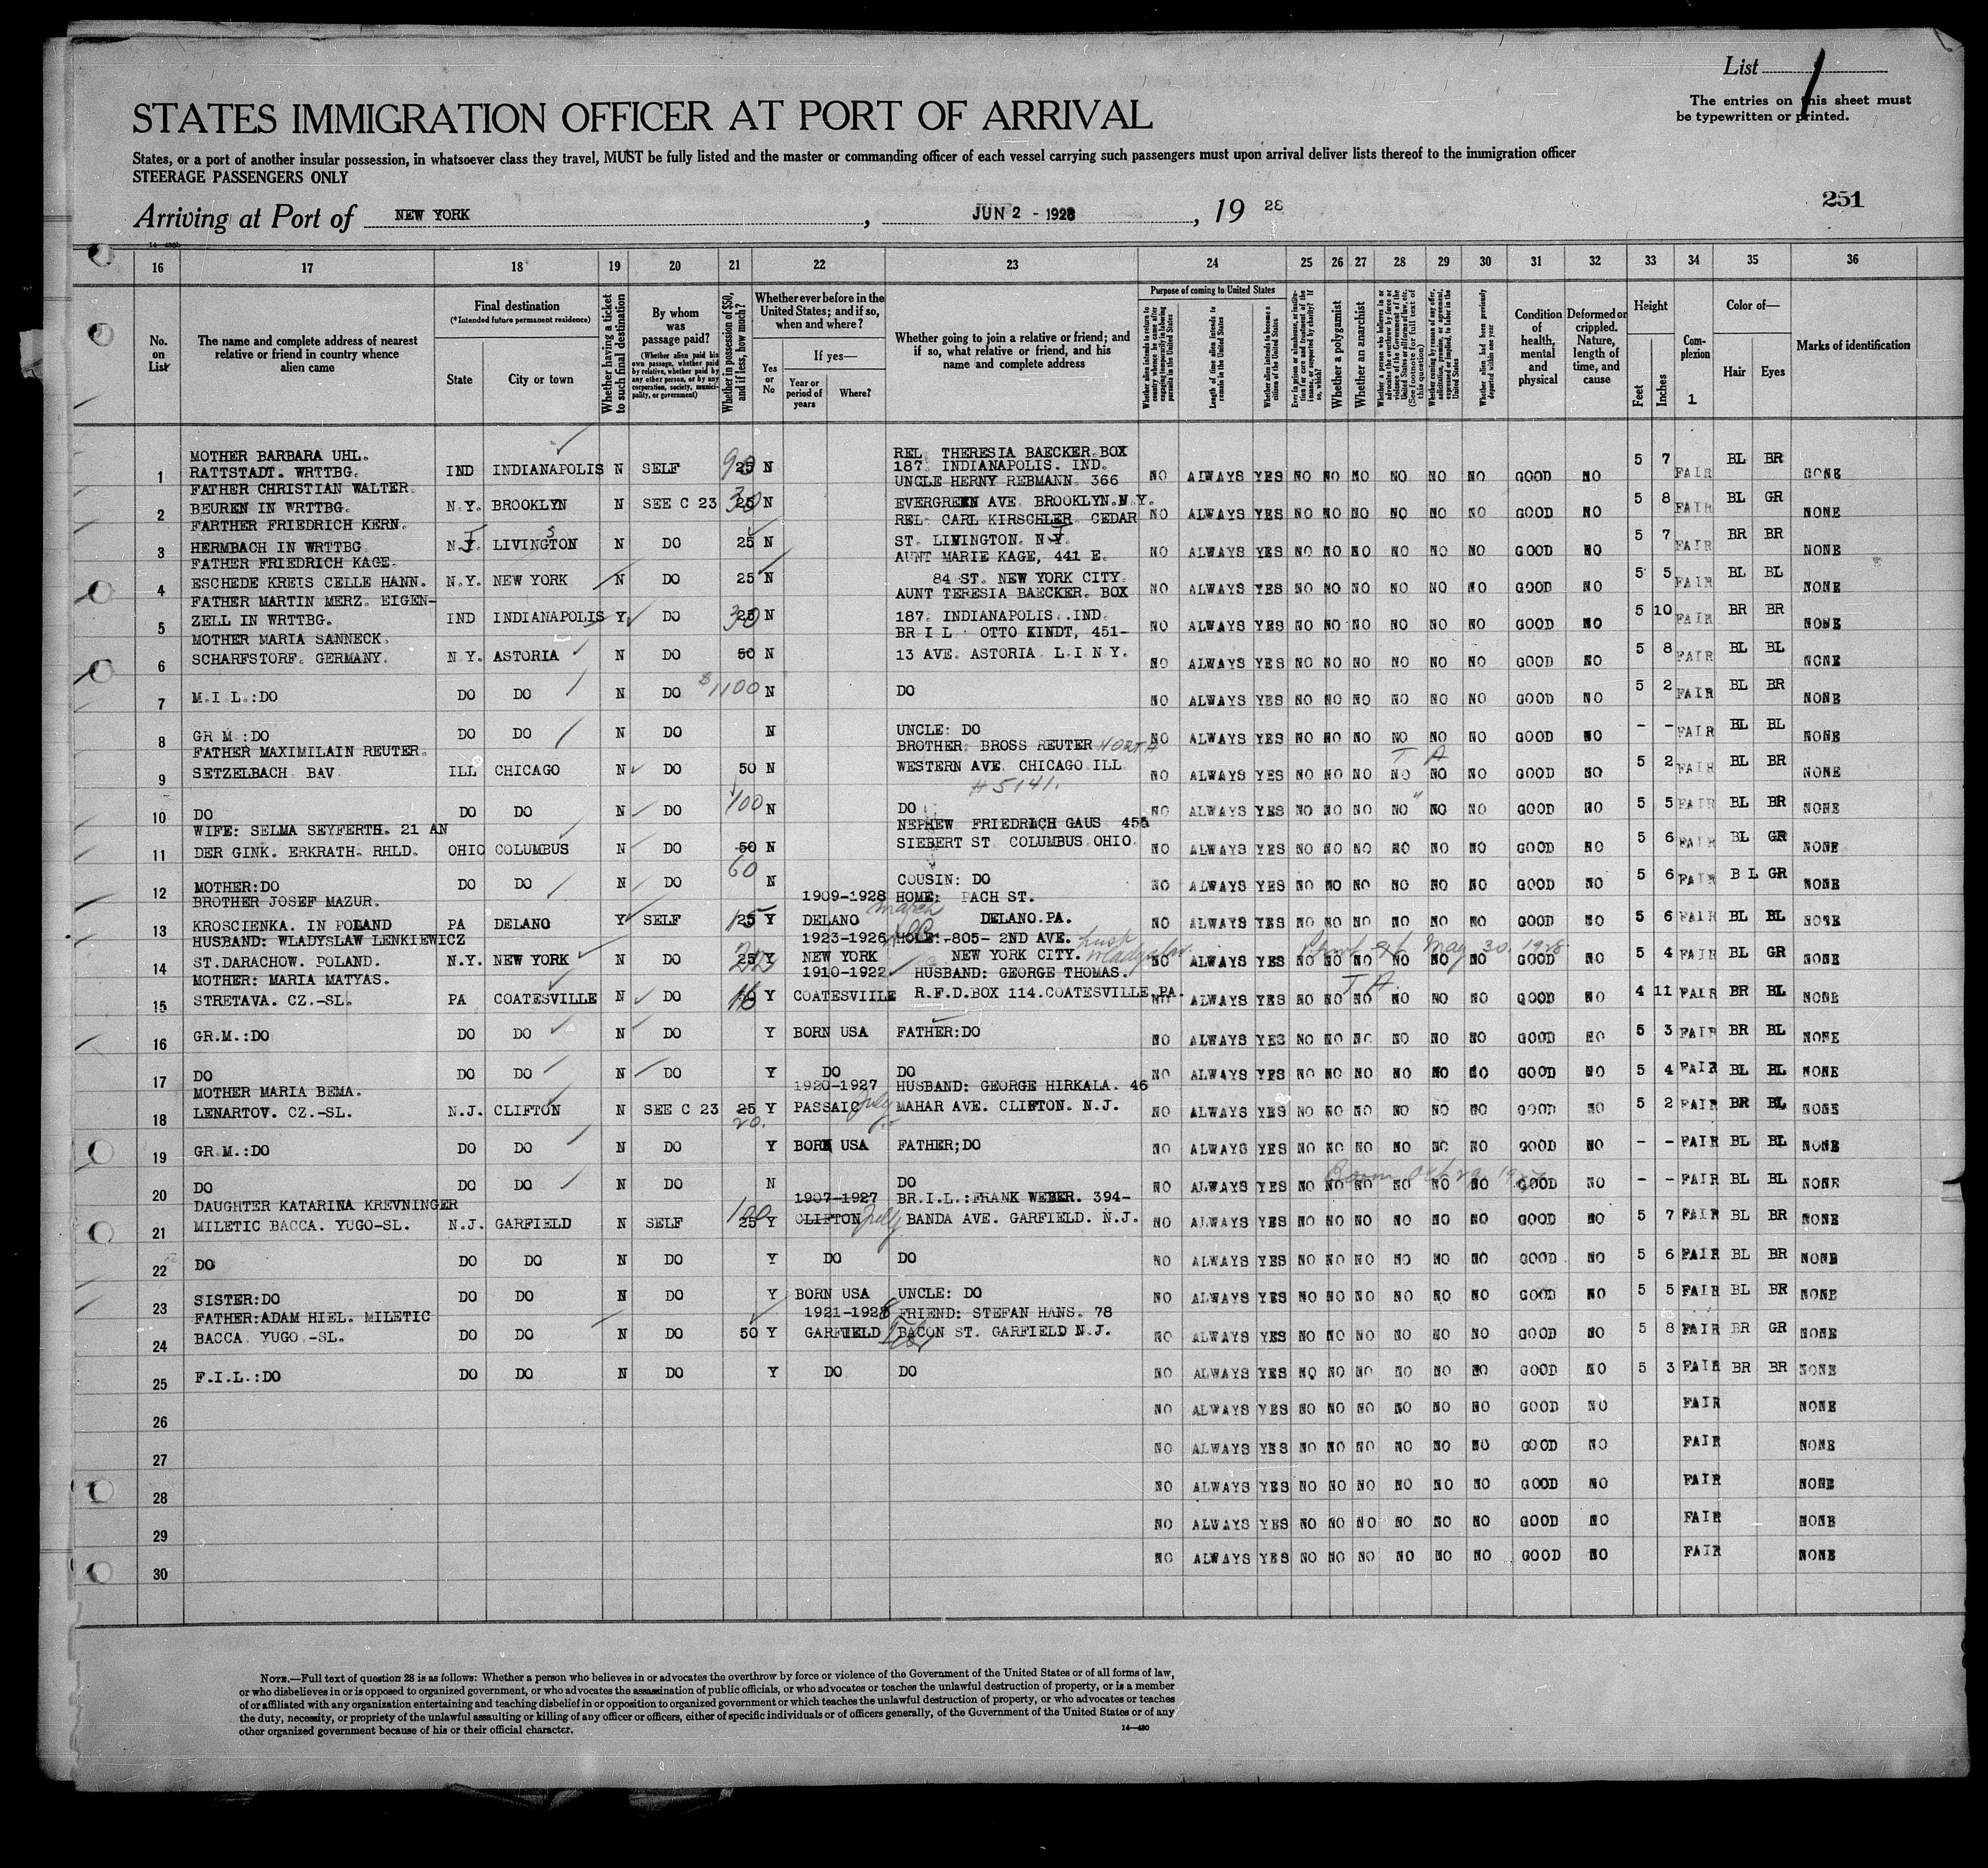 List 1
The entries on this sheet must
be typewritten or printed.
STATES IMMIGRATION OFFICER AT PORT OF ARRIVAL
States, or a port of another insular possession, in whatsoever class they travel, MUST be fully listed and the master or commanding officer of each vessel carrying such passengers must upon arrival deliver lists thereof to the immigration officer
STEERAGE PASSENGERS ONLY
251
Arriving at Port of NEW YORK, JUN 2 - 1928, 19 28
16 17 18 19 20 21 22 23 24 25 26 27 28 29 30 31 32 33 34 35 36
No. on List
The name and complete address of nearest relative or friend in country whence alien came
Final destination
(*Intended future permanent residence)
State
City or town
Whether having a ticket to such final destination
By whom was passage paid?
(Whether alien paid his own passage, whether paid by relative, whether paid by any other person, or by any corporation, society, municipality, or government)
Whether in possession of $50, and if less, how much?
Whether ever before in the United States; and if so, when and where?
Yes or No
If yes—
Year or period of years
Where?
Whether going to join a relative or friend; and if so, what relative or friend, and his name and complete address
Purpose of coming to United States
Length of time alien intends to remain in the United States
Whether alien intends to become a citizen of the United States
Whether a polygamist
Whether an anarchist
Whether alien had been previously deported within one year
Condition of health, mental and physical
Deformed or crippled. Nature, length of time, and cause
Height
Feet
Inches
Complexion
Color of—
Hair
Eyes
Marks of identification
1 MOTHER BARBARA UHL. RATTSTADT. WRTTBG. IND INDIANAPOLIS N SELF 25 N REL. THERESIA BAECKER BOX 187. INDIANAPOLIS. IND. NO ALWAYS YES NO NO NO NO NO NO GOOD NO 5 7 FAIR BL BR NONE
2 FATHER CHRISTIAN WALTER. BEUREN IN WRTTBG. N.Y. BROOKLYN N SEE C 23 25 30 N UNCLE HERNY REBMANN. 366 EVERGREEN AVE. BROOKLYN.N.Y. NO ALWAYS YES NO NO NO NO NO NO GOOD NO 5 8 FAIR BL GR NONE
3 FARTHER FRIEDRICH KERN. HERMBACH IN WRTTBG. N.J. LIVINGTON N DO 25 N REL. CARL KIRSCHLER CEDAR ST. LIVINGTON. N.J. NO ALWAYS YES NO NO NO NO NO NO GOOD NO 5 7 FAIR BR BR NONE
4 FATHER FRIEDRICH KAGE. ESCHEDE KREIS CELLE HANN. N.Y. NEW YORK N DO 25 N AUNT MARIE KAGE, 441 E. 84 ST. NEW YORK CITY. NO ALWAYS YES NO NO NO NO NO NO GOOD NO 5 5 FAIR BL BL NONE
5 FATHER MARTIN MERZ. EIGEN-ZELL IN WRTTBG. IND INDIANAPOLIS Y DO 25 30 N AUNT TERESIA BAECKER. BOX 187. INDIANAPOLIS..IND. NO ALWAYS YES NO NO NO NO NO NO GOOD NO 5 10 FAIR BR BR NONE
6 MOTHER MARIA SANNECK. SCHARFSTORF. GERMANY. N.Y. ASTORIA N DO 50 N BR I L OTTO KINDT, 451-13 AVE. ASTORIA L.I N Y. NO ALWAYS YES NO NO NO NO NO NO GOOD NO 5 8 FAIR BL BL NONE
7 M.I L.:DO DO DO N DO $1100 N DO NO ALWAYS YES NO NO NO NO NO NO GOOD NO 5 2 FAIR BL BR NONE
8 GR M :DO DO DO N DO N UNCLE: DO NO ALWAYS YES NO NO NO NO NO NO GOOD NO - - FAIR BL BL NONE
9 FATHER MAXIMILAIN REUTER. SETZELBACH BAV ILL CHICAGO N DO 50 N BROTHER: BROSS REUTER NORTH WESTERN AVE. CHICAGO ILL # 5141. T A NO ALWAYS YES NO NO NO NO NO NO GOOD NO 5 2 FAIR BL BR NONE
10 DO DO DO N DO 100 N DO NO ALWAYS YES NO NO NO NO " NO NO GOOD NO 5 5 FAIR BL BR NONE
11 WIFE: SELMA SEYFERTH. 21 AN DER GINK. ERKRATH. RHLD. OHIO COLUMBUS N DO 50 60 N NEPHEW FRIEDRICH GAUS 455 SIEBERT ST COLUMBUS OHIO. NO ALWAYS YES NO NO NO NO NO NO GOOD NO 5 6 FAIR BL GR NONE
12 MOTHER:DO DO DO N DO N COUSIN: DO NO ALWAYS YES NO NO NO NO NO NO GOOD NO 5 6 FAIR B L GR NONE
13 BROTHER JOSEF MAZUR. KROSCIENKA. IN POLAND PA DELANO Y SELF 25 Y 1909-1928 DELANO March HOME: PACH ST. DELANO.PA. NO ALWAYS YES NO NO NO NO NO NO GOOD NO 5 6 FAIR BL BL NONE
14 HUSBAND: WLADYSLAW LENKIEWICZ ST.DARACHOW. POLAND. N.Y. NEW YORK N DO 25 Y 1923-1926 NEW YORK HOLE:-805- 2ND AVE. NEW YORK CITY. May 30. 1928 NO ALWAYS YES NO NO NO NO NO NO GOOD NO 5 4 FAIR BL GR NONE
15 MOTHER: MARIA MATYAS. STRETAVA. CZ.-SL. PA COATESVILLE N DO Y 1910-1922 COATESVIILE HUSBAND: GEORGE THOMAS. R.F.D.BOX 114.COATESVILLE.PA. T A NO ALWAYS YES NO NO NO NO NO NO GOOD NO 4 11 FAIR BR BL NONE
16 GR.M.:DO DO DO N DO Y BORN USA FATHER:DO NO ALWAYS YES NO NO NO NO NO NO GOOD NO 5 3 FAIR BR BL NONE
17 DO DO DO N DO Y DO DO NO ALWAYS YES NO NO NO NO NO NO GOOD NO 5 4 FAIR BL BL NONE
18 MOTHER MARIA BEMA. LENARTOV. CZ.-SL. N.J. CLIFTON N SEE C 23 25 20. Y 1920-1927 PASSAIC July HUSBAND: GEORGE HIRKALA. 46 MAHAR AVE. CLIFTON. N.J. NO ALWAYS YES NO NO NO NO NO NO GOOD NO 5 2 FAIR BR BL NONE
19 GR.M.:DO DO DO N DO Y BORN USA FATHER;DO NO ALWAYS YES NO NO NO NO NO NO GOOD NO - - FAIR BL BL NONE
20 DO DO DO N DO N DO Born Oct 29 NO ALWAYS YES NO NO NO NO NO NO GOOD NO - - FAIR BL BL NONE
21 DAUGHTER KATARINA KREVNINGER MILETIC BACCA. YUGO-SL. N.J. GARFIELD N SELF 25 100 Y 1907-1927 CLIFTON July BR.I.L.:FRANK WEBER. 394-BANDA AVE. GARFIELD. N.J. NO ALWAYS YES NO NO NO NO NO NO GOOD NO 5 7 FAIR BL BR NONE
22 DO DO DO N DO Y DO DO NO ALWAYS YES NO NO NO NO NO NO GOOD NO 5 6 FAIR BL BR NONE
23 SISTER:DO DO DO N DO Y BORN USA UNCLE: DO NO ALWAYS YES NO NO NO NO NO NO GOOD NO 5 5 FAIR BL BR NONE
24 FATHER:ADAM HIEL. MILETIC BACCA. YUGO.-SL. DO DO N DO 50 Y 1921-1928 GARFIELD FRIEND: STEFAN HANS. 78 BACON ST. GARFIELD N.J. NO ALWAYS YES NO NO NO NO NO NO GOOD NO 5 8 FAIR BR GR NONE
25 F.I.L.:DO DO DO N DO Y DO DO NO ALWAYS YES NO NO NO NO NO NO GOOD NO 5 3 FAIR BR BR NONE
26 NO ALWAYS YES NO NO NO NO NO NO GOOD NO FAIR NONE
27 NO ALWAYS YES NO NO NO NO NO NO GOOD NO FAIR NONE
28 NO ALWAYS YES NO NO NO NO NO NO GOOD NO FAIR NONE
29 NO ALWAYS YES NO NO NO NO NO NO GOOD NO FAIR NONE
30 NO ALWAYS YES NO NO NO NO NO NO GOOD NO FAIR NONE
NOTE.—Full text of question 28 is as follows: Whether a person who believes in or advocates the overthrow by force or violence of the Government of the United States or of all forms of law,
or who disbelieves in or is opposed to organized government, or who advocates the assassination of public officials, or who advocates or teaches the unlawful destruction of property, or is a member
of or affiliated with any organization entertaining and teaching disbelief in or opposition to organized government or which teaches the unlawful destruction of property, or who advocates or teaches
the duty, necessity, or propriety of the unlawful assaulting or killing of any officer or officers, either of specific individuals or of officers generally, of the Government of the United States or of any
other organized government because of his or their official character.
14—430